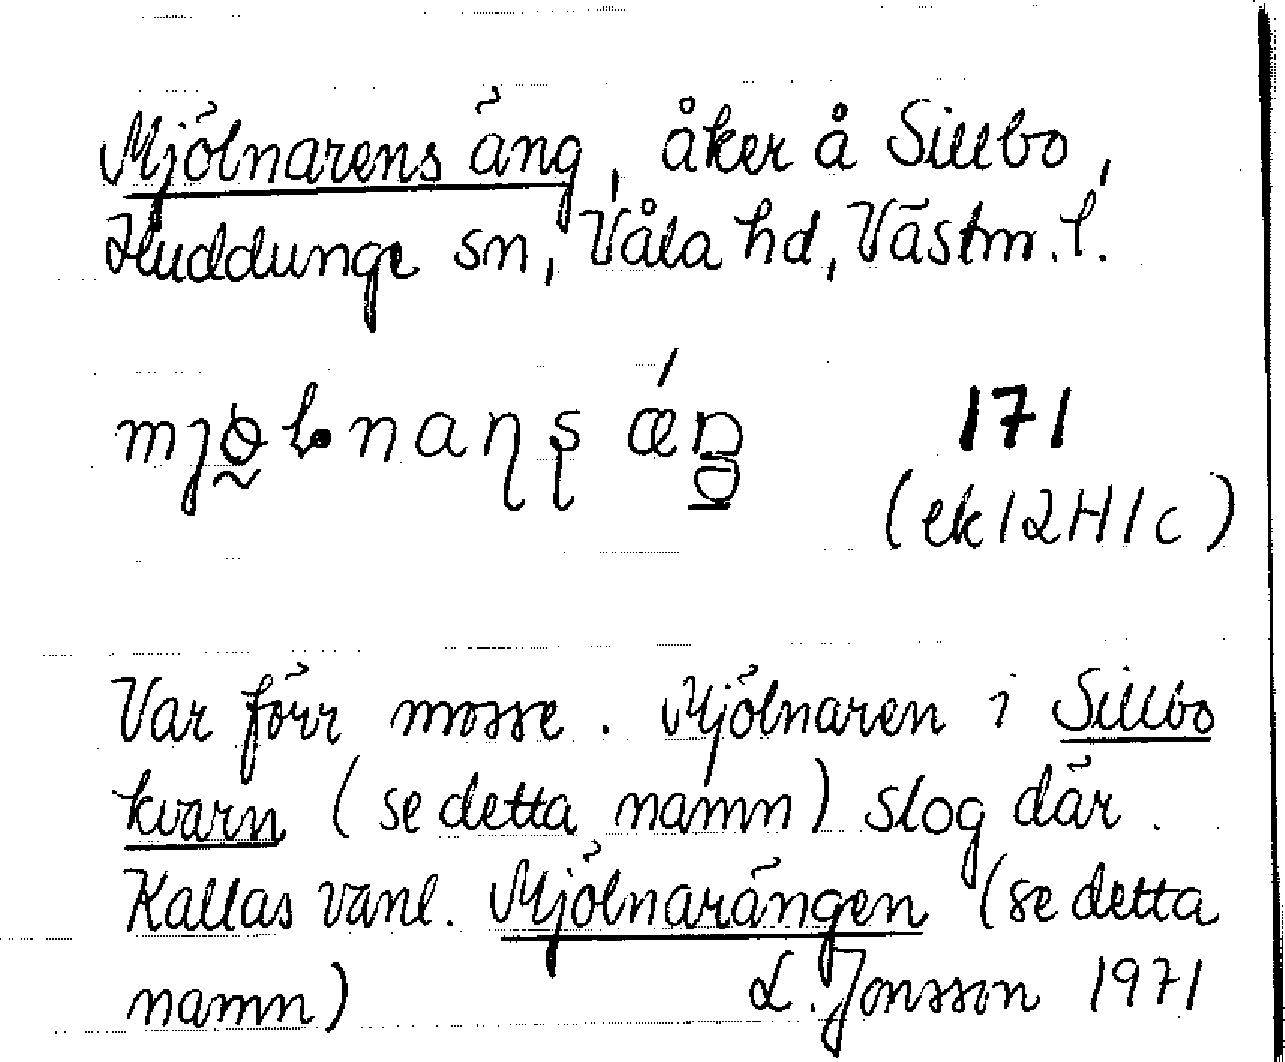 Mjölnarens äng, åker å Sillbo,
Huddunge sn, Våla hd, Västm. l.
171
(ek 12H1c)
Var förr mosse. Mjölnaren i Sillbo
kvarn (se detta namn) slog där.
Kallas vanl. Mjölnarängen (se detta
namn) L. Jonsson 1971